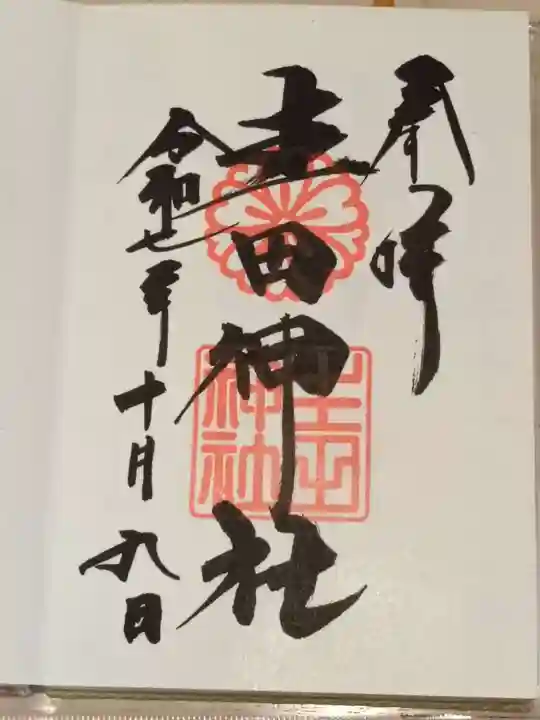 奉拝
吉田神社
令和七年十月九日
吉田神社